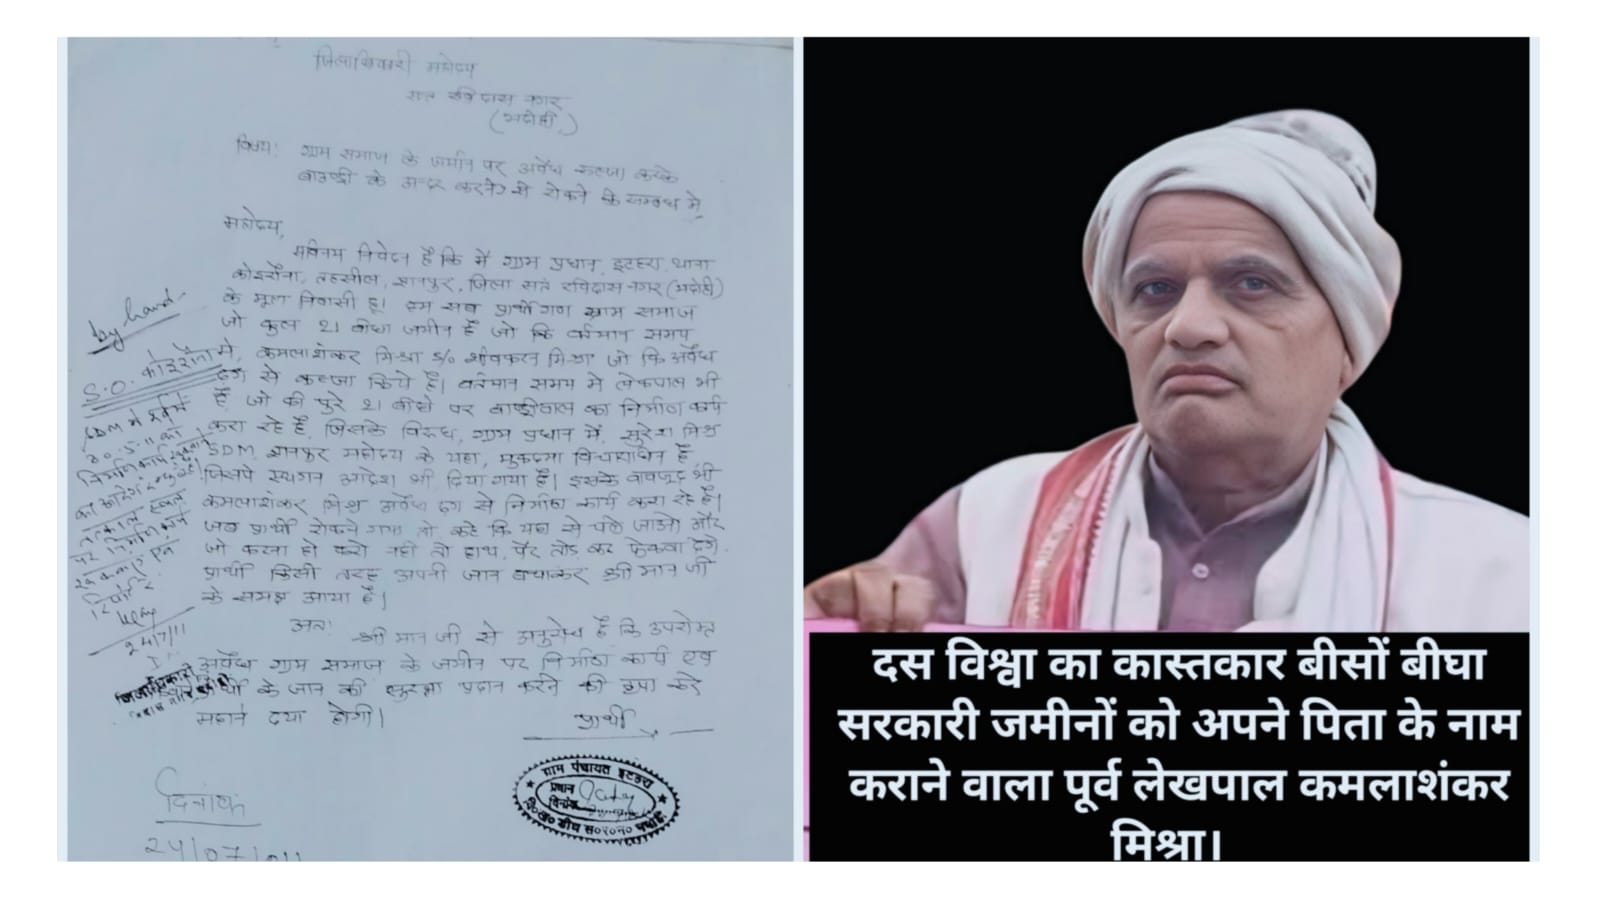 जिलाधिकारी महोदय
सन्त रविदास नगर
(भदोही)
विषय: ग्राम समाज के जमीन पर अवैध कब्जा करके
बाउण्ड्री के अन्दर करने से रोकने के सम्बन्ध में
महोदय,
सविनय निवेदन है कि मैं ग्राम प्रधान, इटहरा, थाना
कोइरौना, तहसील, ज्ञानपुर, जिला सन्त रविदास नगर (भदोही)
के मूल निवासी हूँ। हम सब प्रार्थीगण ग्राम समाज
जो कुल 21 बीघा जमीन है जो कि वर्तमान समय
में, कमलाशंकर मिश्रा s/o मिश्रा जो कि अवैध
ढंग से कब्जा किये है। वर्तमान समय मे लेखपाल भी
है, जो की पुरे 21 बीघे पर बाण्ड्रीवाल का निर्माण कार्य
करा रहे है, जिसके विरुध, ग्राम प्रधान में, सुरेश मिश्र
SDM ज्ञानपुर महोदय के यहा, मुकदमा विचाराधिन है
जिसपे स्थगन आदेश भी दिया गया है। इसके बावजूद भी
कमलाशंकर मिश्र अवैध ढंग से निर्माण कार्य करा रहे है।
जब प्रार्थी रोकने गया तो कहे कि यहा से चले जाओ और
जो करना हो करो नही तो हाथ, पैर तोड़ कर फेकवा देगे.
प्रार्थी किसी तरह अपनी जान बचाकर श्री मान जी
के समक्ष आया है।
अत:
श्री मान जी से अनुरोध है कि उपरोक्त
अवैध ग्राम समाज के जमीन पर निर्माण कार्य एवं
प्रार्थी के जान की सुरक्षा प्रदान करने की कृपा करे
महान दया होगी।
प्रार्थी
by hand
S.O. कोइरौना
SDM ने
20.5.11 को
निर्माण कार्य
का आदेश
तत्काल
पर निर्माण कार्य
24/7/11
जिलाधिकारी
ग्राम पंचायत इटहरा
प्रधान
दिनांक
दिनांक
24/07/011
दस विश्वा का कास्तकार बीसों बीघा
सरकारी जमीनों को अपने पिता के नाम
कराने वाला पूर्व लेखपाल कमलाशंकर
मिश्रा।